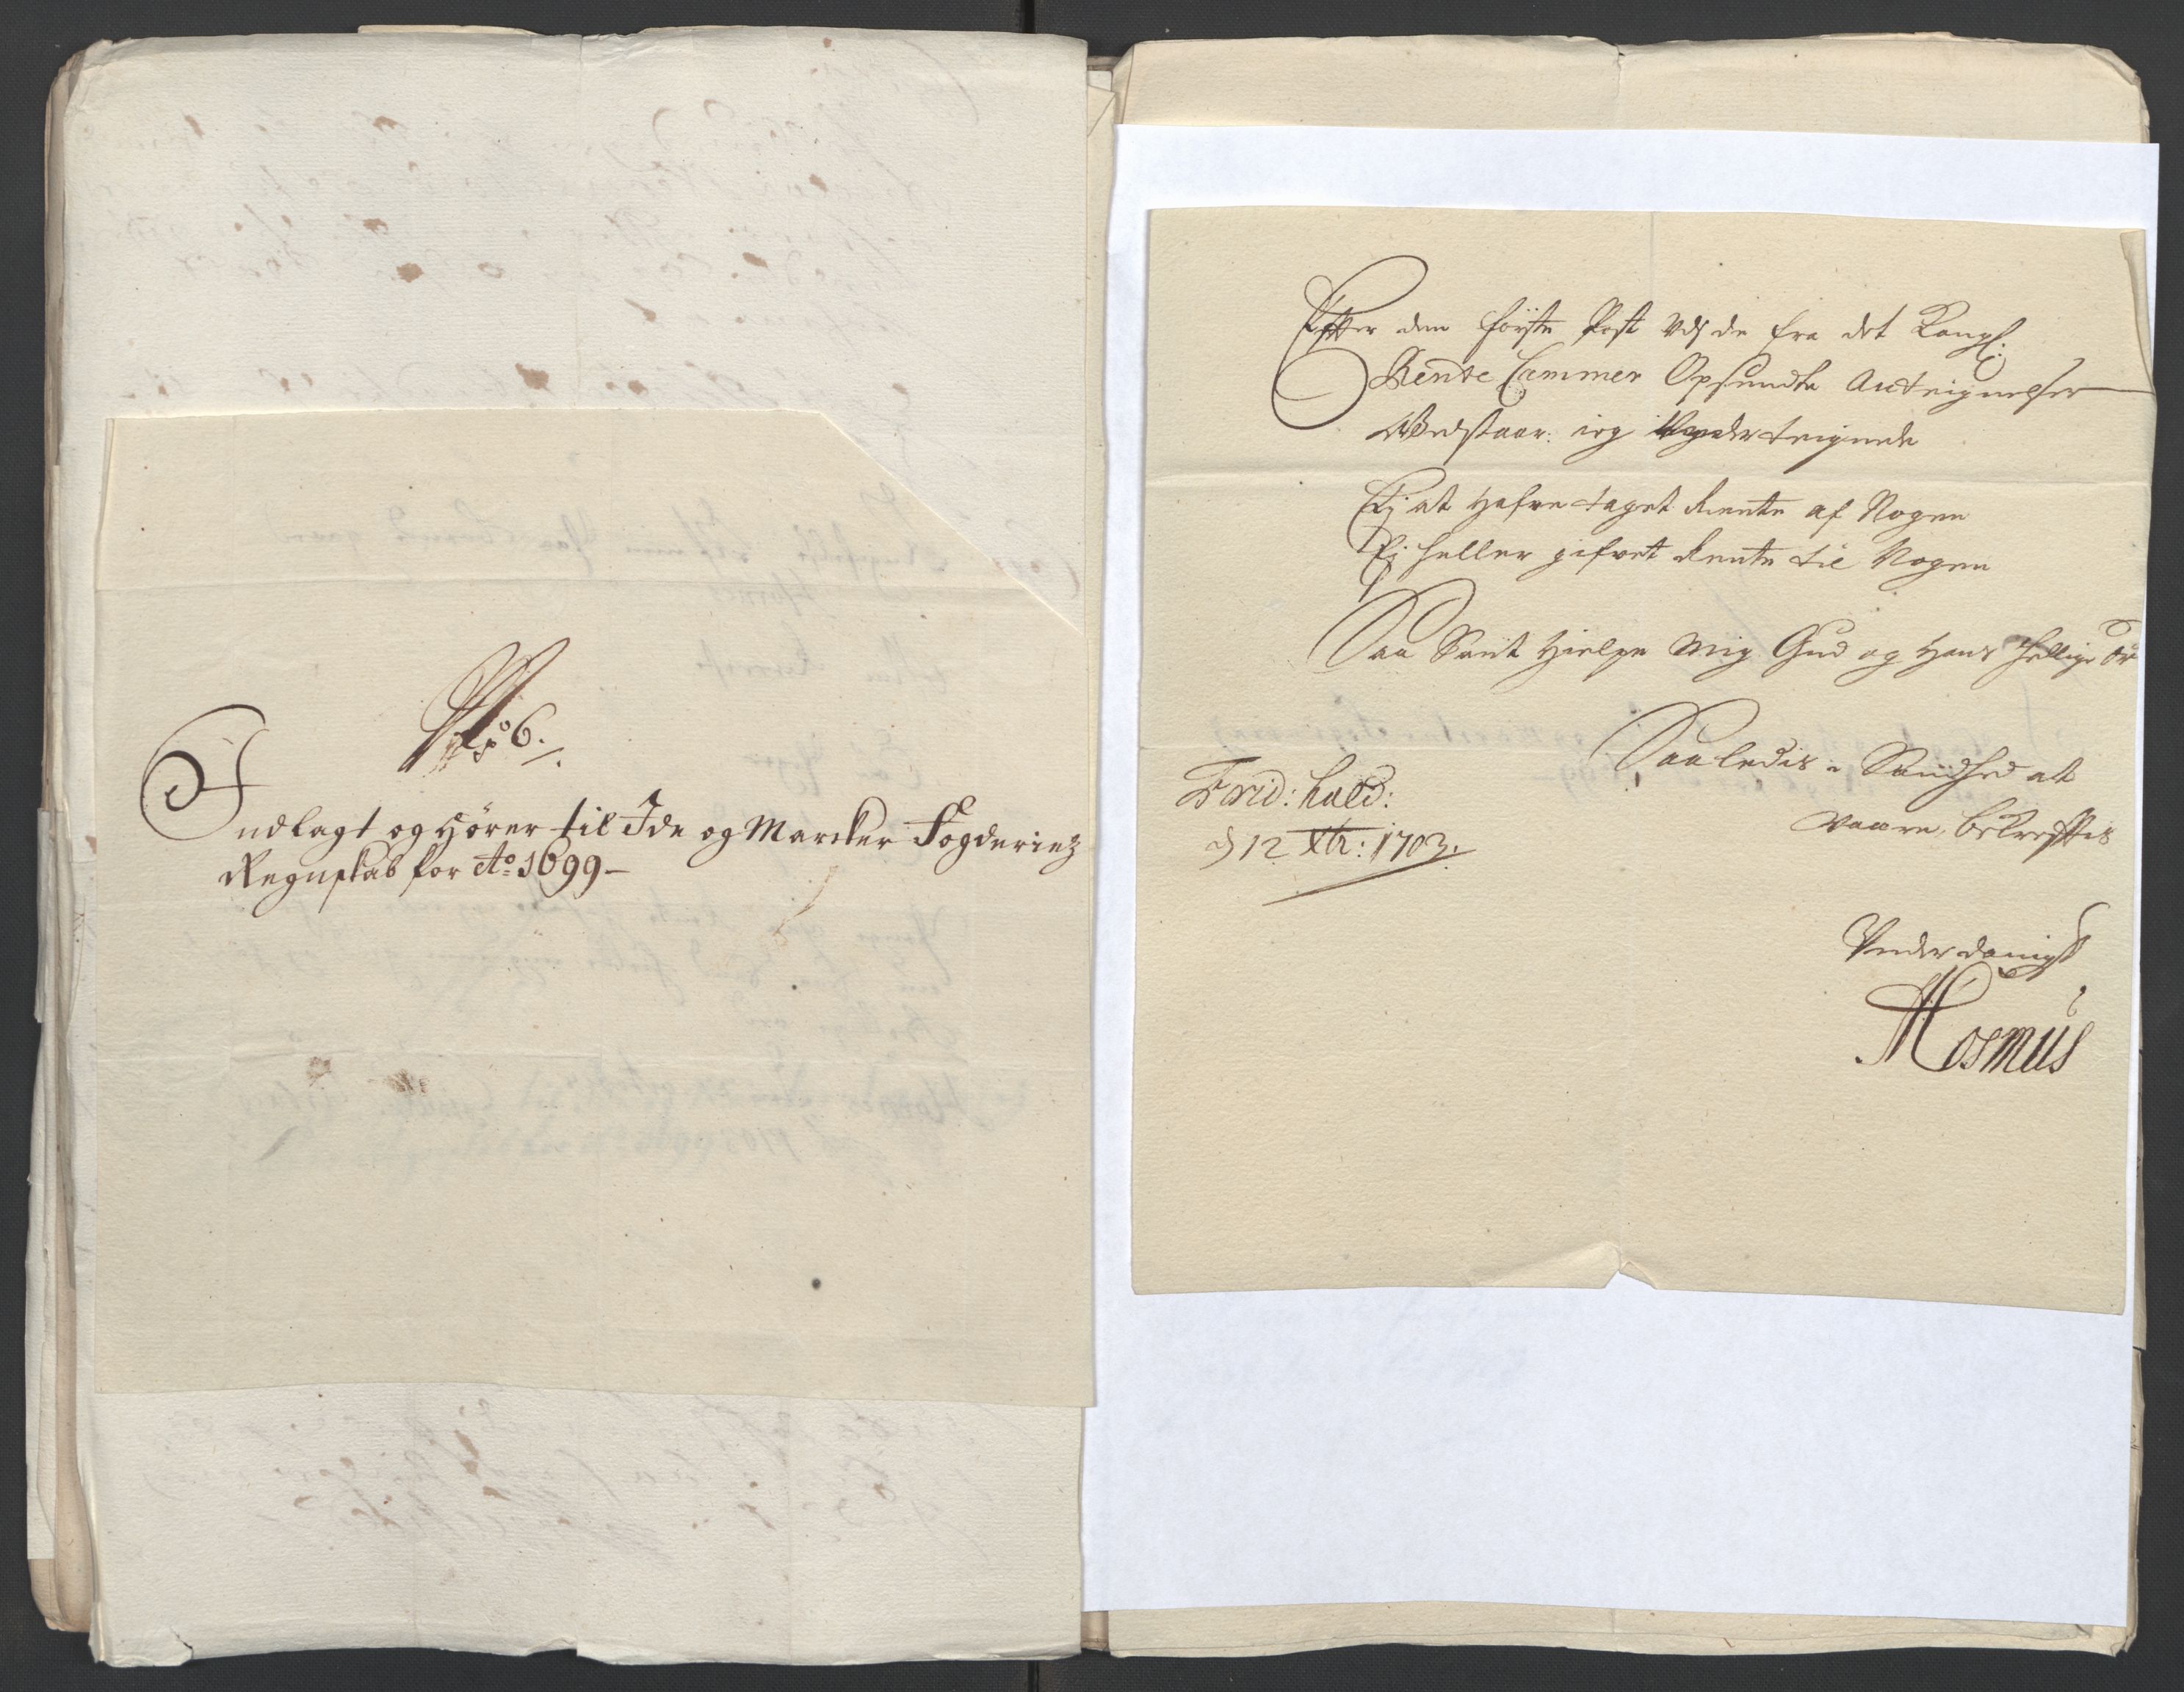 No 6.
Indlagt og hører til Ide og Marcker Fogderiez
Regnskab for Ao: 1699-
Efter den første Post udj de fra det Kongl:
Rente Cammer Opsendte Anteignelser
Vedstaar: ieg Underteignede
Ej at hafve taget Rente af Nogen
Ej heller gifvet Rente til Nogen
Saa Sant Hielpe mig Gud og Hans Hellige Or
Saaledis i Sandhed at
være, bekreftis
Frid: hald:
d 12 Xbr: 1703.
Underdanigst
Mosmus